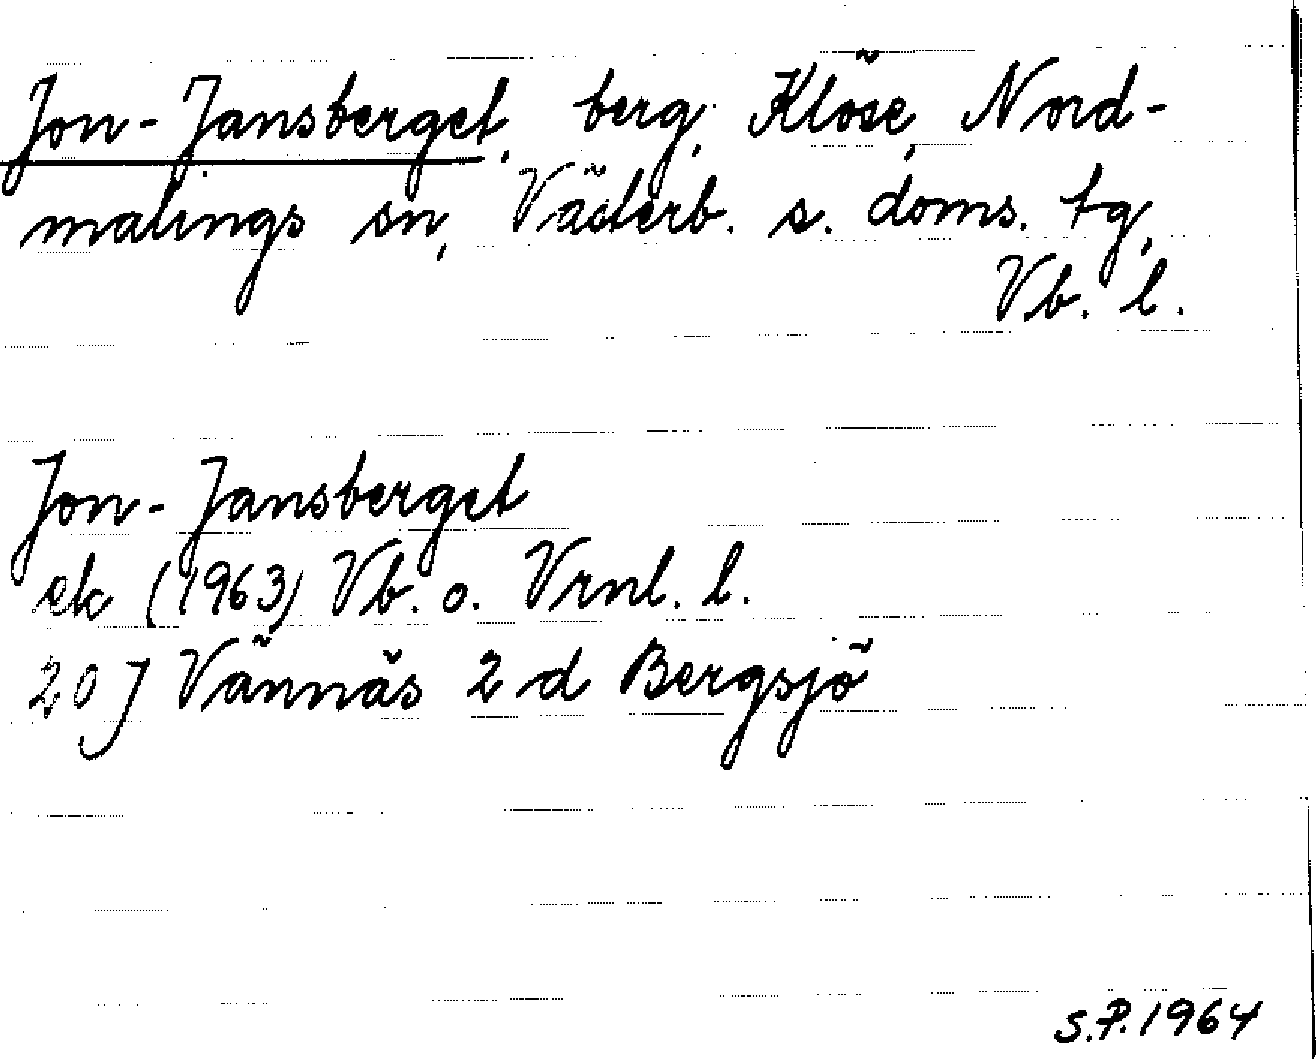 Jon-Jansberget, berg, Klöse, Nord-
malings sn, Västerb. s. doms. tg,
Vb. l.
Jon-Jansberget
ek (1963) Vb. o. Vrnl. l.
20 J Vännäs 2 d Bergsjö
S.P. 1964